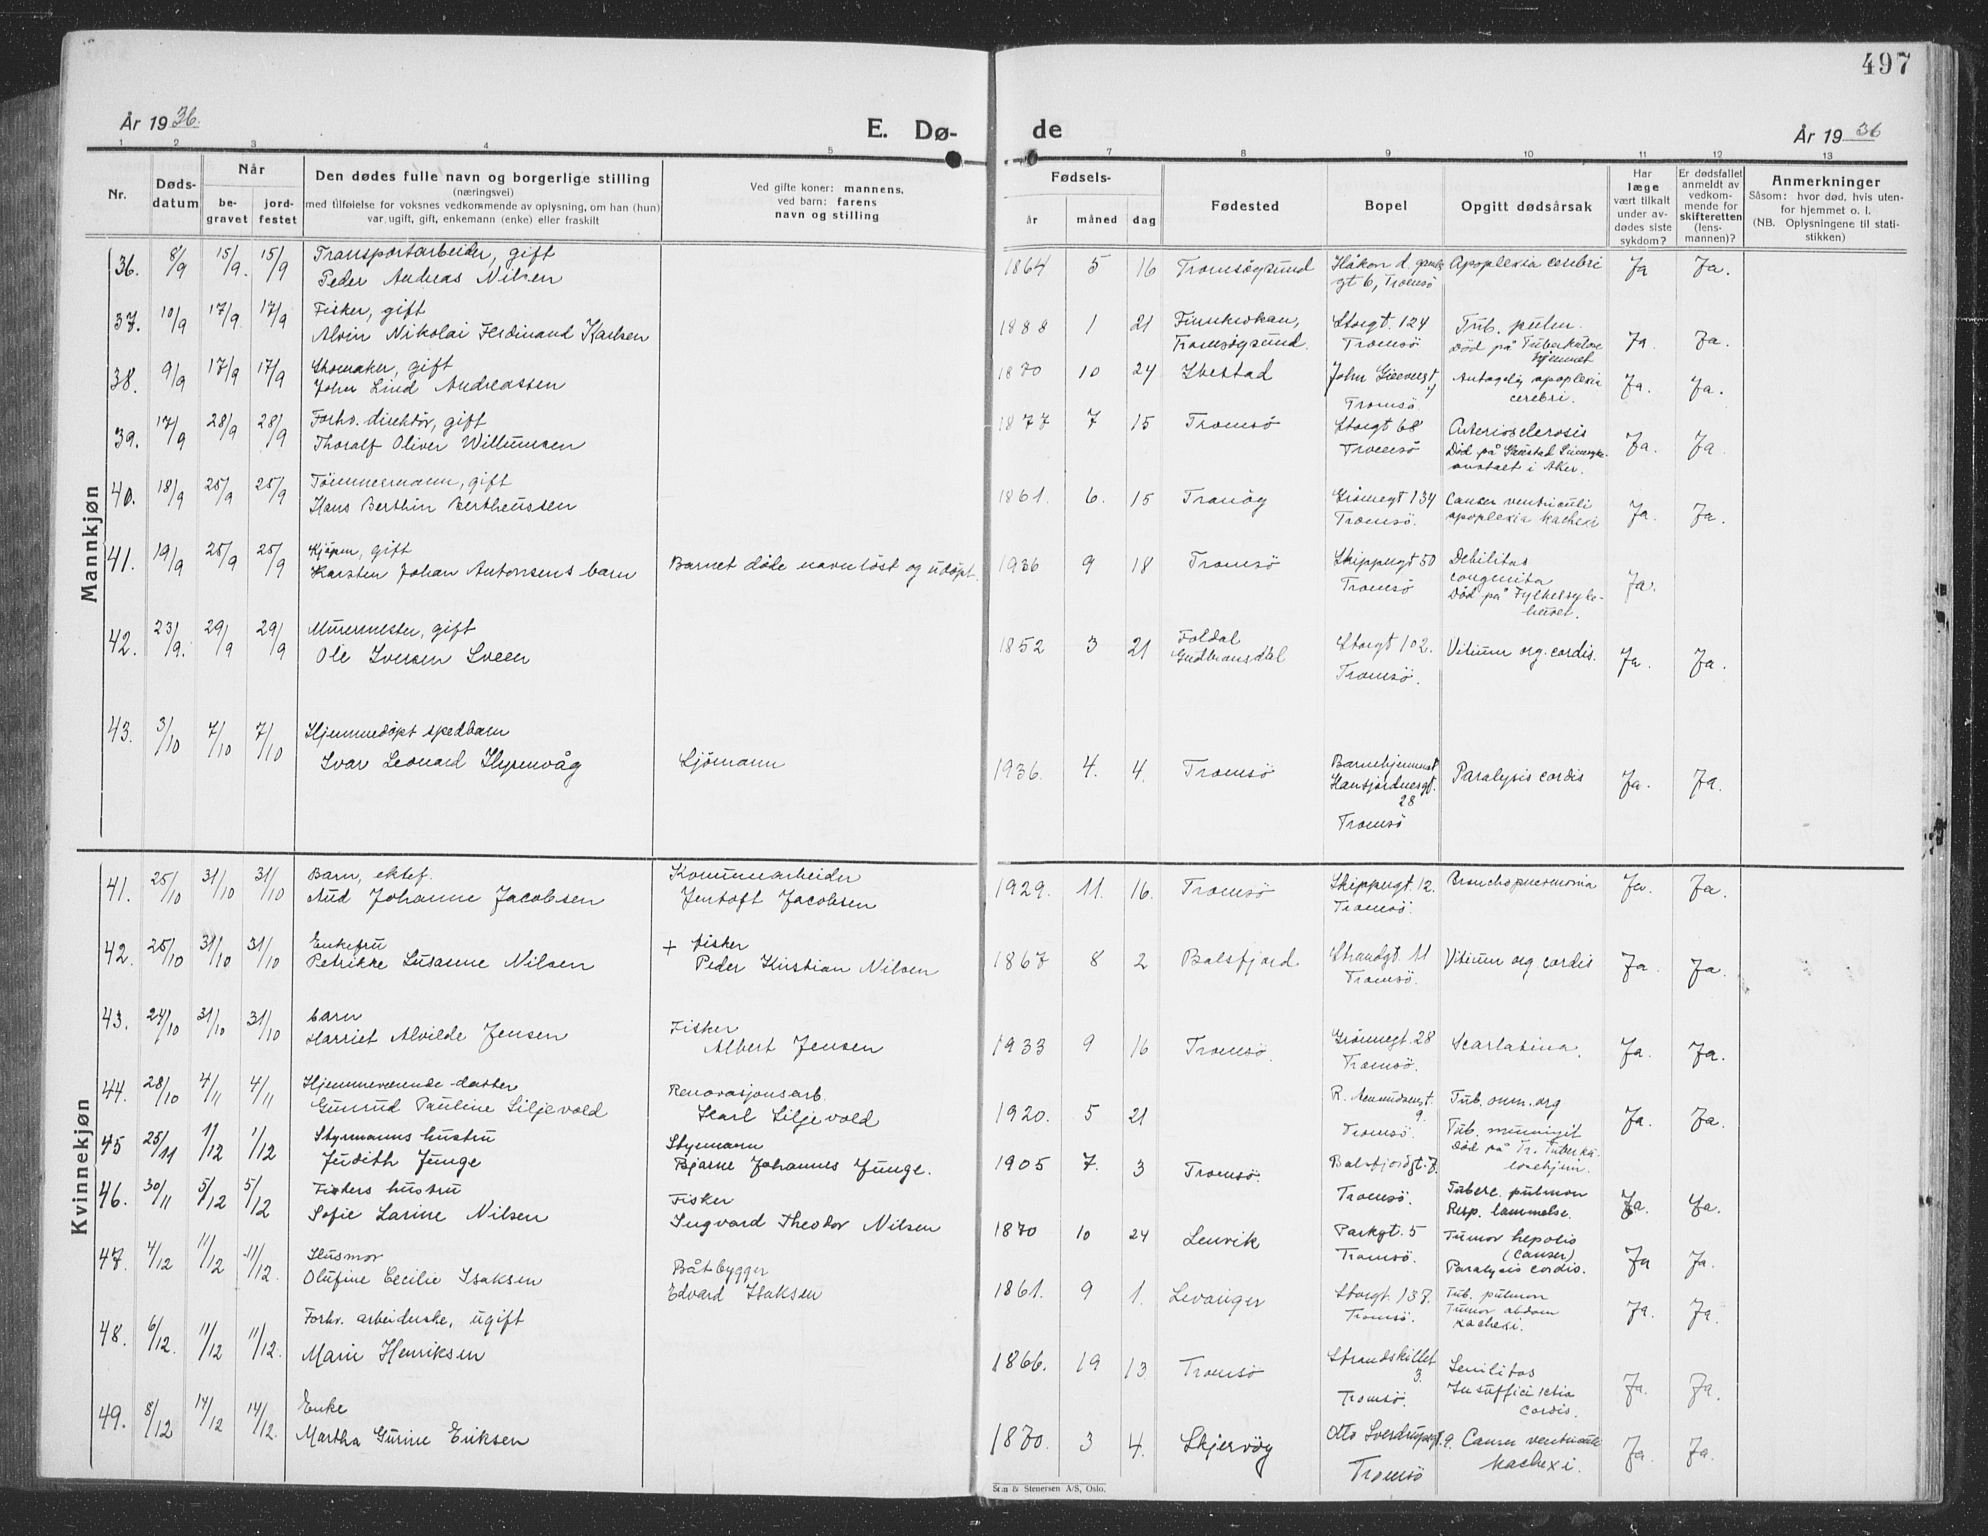 497
År 1936.
E. Dø-
de
År 1936
1 2 3 4 5 7 8 9 10 11 12 13
Nr.
Døds-
datum
Når
be-
gravet
jord-
festet
Den dødes fulle navn og borgerlige stilling
(næringsvei)
med tilføielse for voksnes vedkommende av oplysning, om han (hun)
var ugift, gift, enkemann (enke) eller fraskilt
Ved gifte koner: mannens,
ved barn: farens
navn og stilling
Fødsels-
år
måned
dag
Fødested
Bopel
Opgitt dødsårsak
Har
læge
vært tilkalt
under av-
dødes siste
sykdom?
Er dødsfallet
anmeldt av
vedkom-
mende for
skifteretten
(lens-
mannen)?
Anmerkninger
Såsom: hvor død, hvis uten-
for hjemmet o. l.
(NB. Oplysningene til stati-
stikken)
Mannkjøn
36. 8/9 15/9. 15/9 Transportarbeider, gift
Peder Andreas Nilsen
1864 5 16 Tromsøysund Håkon d. gamles
gt 6, Tromsö Apoplexia cerebri Ja Ja.
37. 10/9 17/9 17/9 Fisker, gift
Alvin Nikolai Ferdinand Karlsen
1888 1 21 Finnkroken,
Tromsøysund. Storgt. 124
Tromsö Tub. pulm.
Død på Tuberkulose
hjemmet Ja. Ja.
38. 9/9 17/9 17/9 Skomaker, gift
Johan Lind Andreassen
1870 10 24 Ibestad John Gieversgt
4
Tromsö. Antagelig apoplexia
cerebri. Ja. Ja.
39. 17/9 28/9 28/9 Forhv. direktör, gift
Thoralf Oliver Willumsen
1877 7 15 Tromsö Storgt 68
Tromsö Arteriosclerosis
Død på Gaustad Sinnsyke-
anstalt i Aker. Ja. Ja
40. 18/9 25/9 25/9 Tömmermann, gift
Hans Berthin Bertheussen
1861. 6. 15 Tranöy Grönnegt 134
Tromsö. Cancer ventriculi
apoplexia kachexi Ja. Ja.
41. 19/9 25/9 25/9 Kjøpm, gift
Karsten Johan Antonsens barn
Barnet døde navnløst og udøpt.
1936 9 18 Tromsö Skippergt 50
Tromsö Debilitas
congenita
Død på Fylkessyke-
huset. Ja.
42. 23/9. 29/9 29/9 Murermester, gift
Ole Iversen Sveen
1852 3 21 Foldal
Gudbransdal Storgt 102.
Tromsö. Vitium org. cordis. Ja. Ja.
43. 3/10 7/10 7/10 Hjemmedøpt spedbarn
Ivar Leonard Hyrenvåg
Sjömann
1936. 4. 4. Tromsö Barnehjemmet
Hansjordnesgt.
28
Tromsö Paralysis cordis Ja. Ja.
Kvinnekjøn
41. 25/10 31/10 31/10 Barn, ektef.
Aud Johanne Jacobsen
Kommunearbeider
Jentoft Jacobsen
1929. 11. 16. Tromsö Skippergt. 12.
Tromsö. Bronchopneumonia Ja. Ja.
42. 25/10 31/10 31/10 Enkefru
Petrikke Susanne Nilsen
+ fisker
Peder Kristian Nilsen
1867 8 2 Balsfjord Strandgt. 11
Tromsö. Vitium org cordis Ja Ja.
43. 24/10 31/10 31/10 barn
Harriet Alvilde Jensen
Fisker
Albert Jensen
1933 9 16 Tromsö. Grönnegt. 28
Tromsö. Scarlatina. Ja. Ja.
44. 28/10 4/11 4/11 Hjemmeværende datter
Gunrud Pauline Liljevold
Renovasjonsarb.
Karl Liljevold
1920. 5 21 R. Amundsensgt.
9.
Tromsö. Tub. omn. org
Tub. meningit
Død på Tr. Tuberku-
losehjem. Ja. Ja.
45 25/11 1/12 1/12 Styrmanns hustru
Judith Junge
Styrmann
Bjarne Johannes Junge.
1905 7. 3 Tromsö. Balsfjordgt. 7.
Tromsö. Tuberc. pulmon
Resp. lammelse. Ja. Ja.
46. 30/11 5/12 5/12 Fiskers hustru
Sofie Larine Nilsen
Fisker
Ingvard Theodor Nilsen
1870 10 24 Lenvik Parkgt. 5
Tromsö. Tumor hepatis
(Canser)
Paralysis cordis. Ja Ja.
47. 4/12 11/12 11/12. Husmor
Olufine Cecilie Isaksen
Båtbygger
Edvard Isaksen
1861. 9 1. Levanger Storgt. 137.
Tromsö. Tub. pulmon
Tumor abdom
kachexi. Ja. Ja.
48. 6/12. 11/12 11/12. Forhv. arbeiderske, ugift
Marie Henriksen
1866. 19 13 Tromsö Strandskillet
3.
Tromsö. Senilitas
Insufficientia
cordis. Ja. Ja.
49. 8/12 14/12 14/12. Enke
Martha Gurine Eriksen
1870. 3 4. Skjervøy Otto Sverdrupsgt. 9.
Tromsö Canser ventriculi
kachexi. Ja. Ja.
& Stenersen A/S, Oslo.